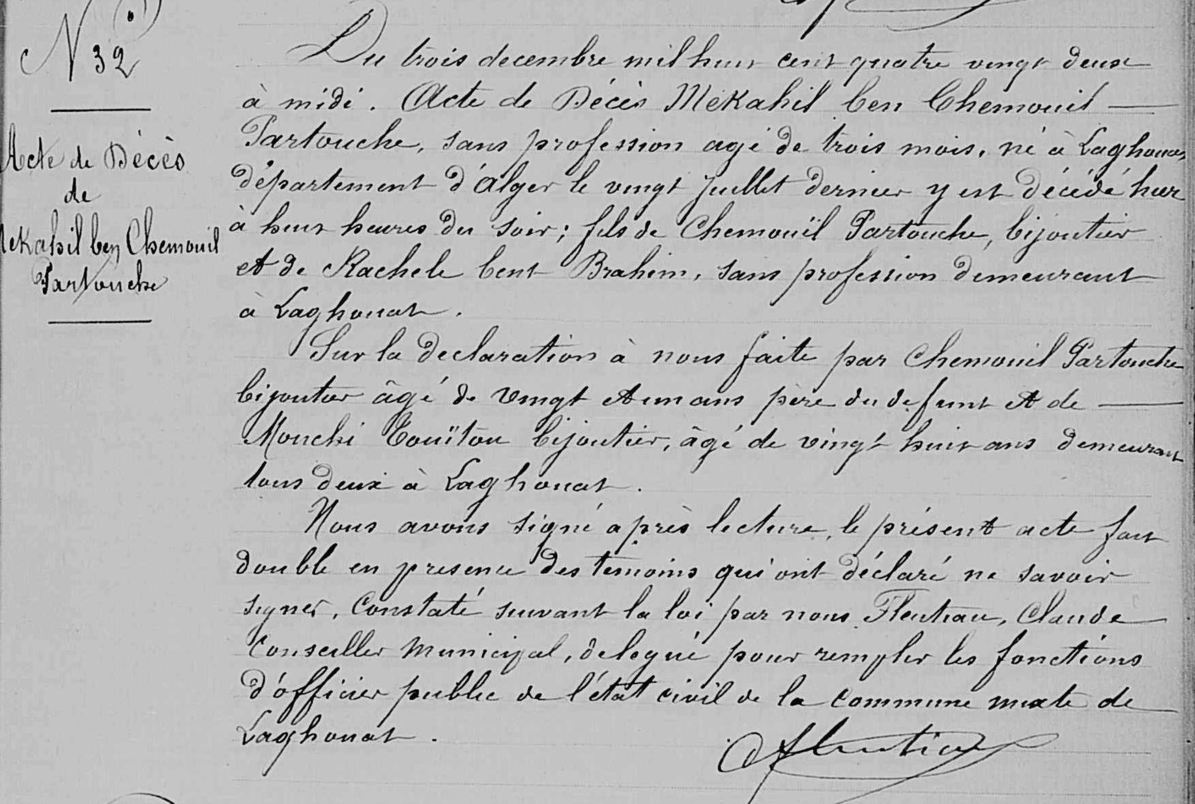 N 32
Acte de Décès
de
Mekahil ben Chemouil
Partouche
Du trois decembre mil huit cent quatre vingt deux
à midi. Acte de Décès Mekahil ben Chemouil —
Partouche, sans profession agé de trois mois, né à Laghouat
département d'Alger le vingt Juillet dernier y est décédé hier
à huit heures du soir; fils de Chemouïl Partouche, bijoutier
et de Rachele bent Brahim, sans profession demeurant
à Laghouat.
Sur la declaration à nous faite par Chemouil Partouche
bijoutier âgé de vingt et un ans père du defunt et de —
Mouchi Touïtou bijoutier, âgé de vingt huit ans demeurant
tous deux à Laghouat.
Nous avons signé après lecture, le présent acte fait
double en presence des temoins qui ont déclaré ne savoir
signer, Constaté suivant la loi par nous Fleutiau, Claude
Conseiller Municipal, delegué pour remplir les fonctions
d'officier public de l'état civil de la commune mixte de
Laghouat.
Fleutiau